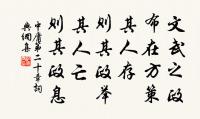 文武之政
布在方策
其人存
則其政舉
其人亡
則其政息
中庸第二十章詞
典網集